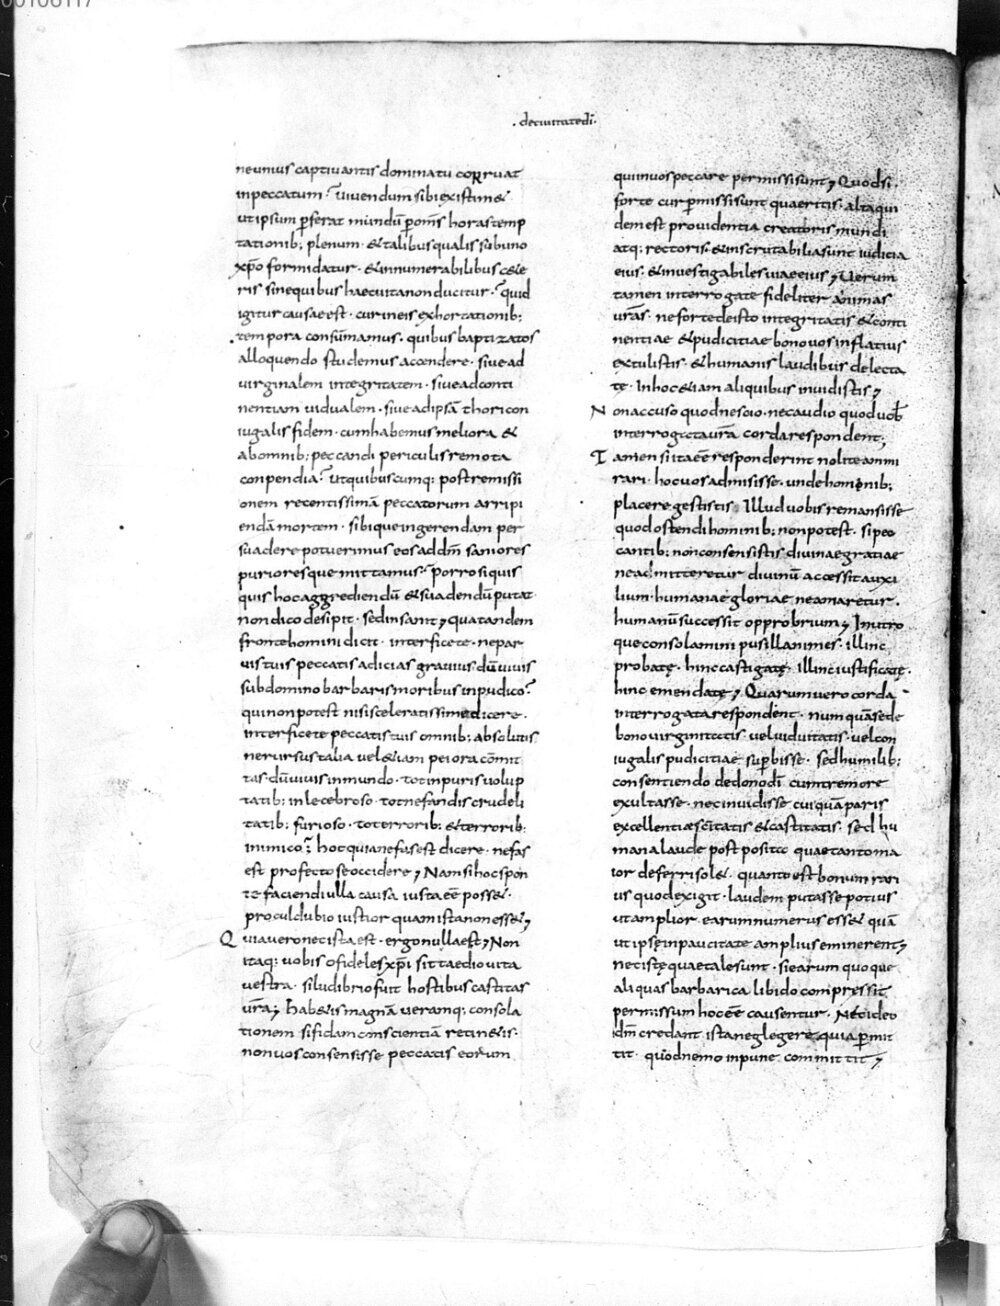 00106117
. deciuitatedi.
neunius captiuantis dominatu corruat
inpeccatum? uiuendum sibi existimet
ut ipsum pferat mundū p om̄s horas temp
tationib; plenum · & talibus qualis sub uno
xp̄o formidatur · & innumerabilibus cete
ris sine quibus haec uita non ducitur · quid
igitur causae est · cur in eis exhortationib;
tempora consūmamus · quibus baptizatos
alloquendo studemus accendere · siue ad
uirginalem integritatem · siue ad conti
nentiam uidualem · siue ad ipsā thori con
iugalis fidem · cum habemus meliora &
ab omnib; peccandi periculis remota
conpendia? ut quibuscumq; post remissi
onem recentissimā peccatorum arripi
endā mortem · sibique ingerendam per
suadere potuerimus eos ad dm̄ saniores
purioresque mittamus? porro si quis
quis hoc aggrediendū & suadendū putat
non dico desipit · sed insanit; qua tandem
fronte homini dicit · interfice te · ne par
uis tuis peccatis adicias grauius dū uiuis
sub domino barbaris moribus inpudico?
qui non potest nisi sceleratissime dicere ·
interfice te peccatis tuis omnib; absolutis
ne rursus talia uel etiam peiora cōmit
tas dū uiuis in mundo · tot inpuris uolup
tatib; inlecebroso · tot nefandis crudeli
tatib; furioso · tot errorib; & terrorib;
inimico? hoc quia nefas est dicere · nefas
est profecto se occidere ; Nam si hoc spon
te faciendi ulla causa iusta eē posset ·
procul dubio iustior quam ista non esset ;
Quia uero nec ista est · ergo nulla est ; Non
itaq; uobis o fideles xp̄i sit taedio uita
uestra · si ludibrio fuit hostibus castitas
ur̄a ; habetis magnā ueramq; consola
tionem si fidam conscientiā retinetis ·
non uos consensisse peccatis eorum
qui in uos peccare permissi sunt ; Quod si
forte cur pmissi sunt quaeritis · alta qui
dem est prouidentia creatoris mundi
atq; rectoris · & inscrutabilia sunt iudicia
eius · & inuestigabiles uiae eius ; Uerum
tamen interrogate fideliter animas
ur̄as · ne forte de isto integritatis & conti
nentiae & pudicitiae bono uos inflatius
extulistis · & humanis laudibus delecta
tę · in hoc etiam aliquibus inuidistis ;
Non accuso quod nescio · nec audio quod uob̄
interrogata ur̄a corda respondent ;
Tamen si ita eē responderint nolite ammi
rari · hoc uos admisisse · unde hominib;
placere gestistis · Illud uobis remansisse
quod ostendi hominib; non potest · si pec
cantib; non consensistis diuinae gratiae
ne admitteretur diuinū accessit auxi
lium · humanae gloriae ne amaretur ·
humanū successit opprobrium ; In utro
que consolamini pusillanimes · illinc
probatę · hinc castigatę · illinc iustificatę ·
hinc emendatę ; Quarum uero corda
interrogata respondent · numquā se de
bono uirginitatis · uel uiduitatis · uel con
iugalis pudicitiae supbisse · sed humilib;
consentiendo de dono di cum tremore
exultasse · nec inuidisse cuiquā paris
excellentiae sc̄itatis & castitatis · sed hu
mana laude postposita quae tanto ma
ior deferri solet · quanto est bonum rari
us quod exigit · laudem putasse potius
ut amplior earum numerus esset quā
ut ipsę in paucitate amplius eminerent ;
nec istę quae tales sunt · si earum quoque
aliquas barbarica libido compressit
permissum hoc eē causentur · Nec ideo
dm̄ credant ista neglegere quia pmit
tit · quod nemo inpune committit ;